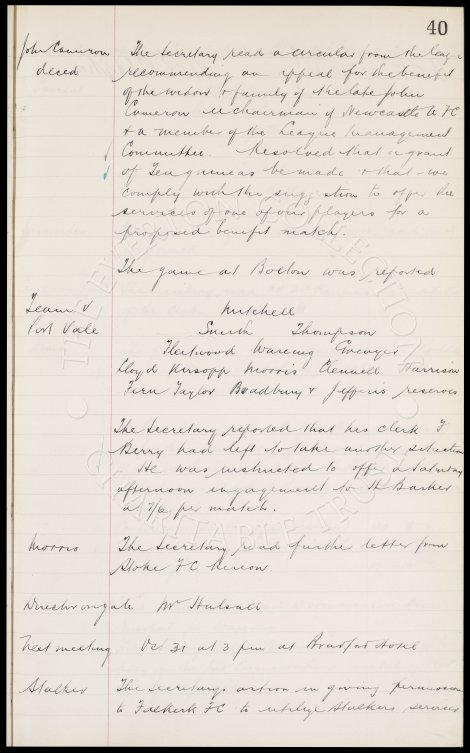 40
John Cameron
decsd
The Secretary read a circular from the League
recommending an appeal for the benefit
of the widow & family of the late John
Cameron chairman of Newcastle U FC
& a member of the League Management
Committee. Resolved that a grant
of Ten guineas be made & that we
comply with the suggestion to offer the
services of one of our players for a
proposed benefit match.
The game at Bolton was reported
Team v
Port Vale
Mitchell
Smith Thompson
Fleetwood Wareing Grenyer
Lloyd Kirsopp Morris Clennell Harrison
Fern Taylor Bradbury & Jefferis reserves
The Secretary reported that his clerk F
Berry had left to take another situation
He was instructed to offer a Saturday
afternoon engagement to H Barker
at 7/6 per match.
Morris
The Secretary read further letter from
Stoke FC hereon.
Director on gate Mr Halsall
Next meeting Oct 31 at 3 pm at Bradford Hotel
Stalker
The secretarys action in giving permission
to Falkirk FC to utilize Stalkers services
THE EVERTON COLLECTION
CHARITABLE TRUST